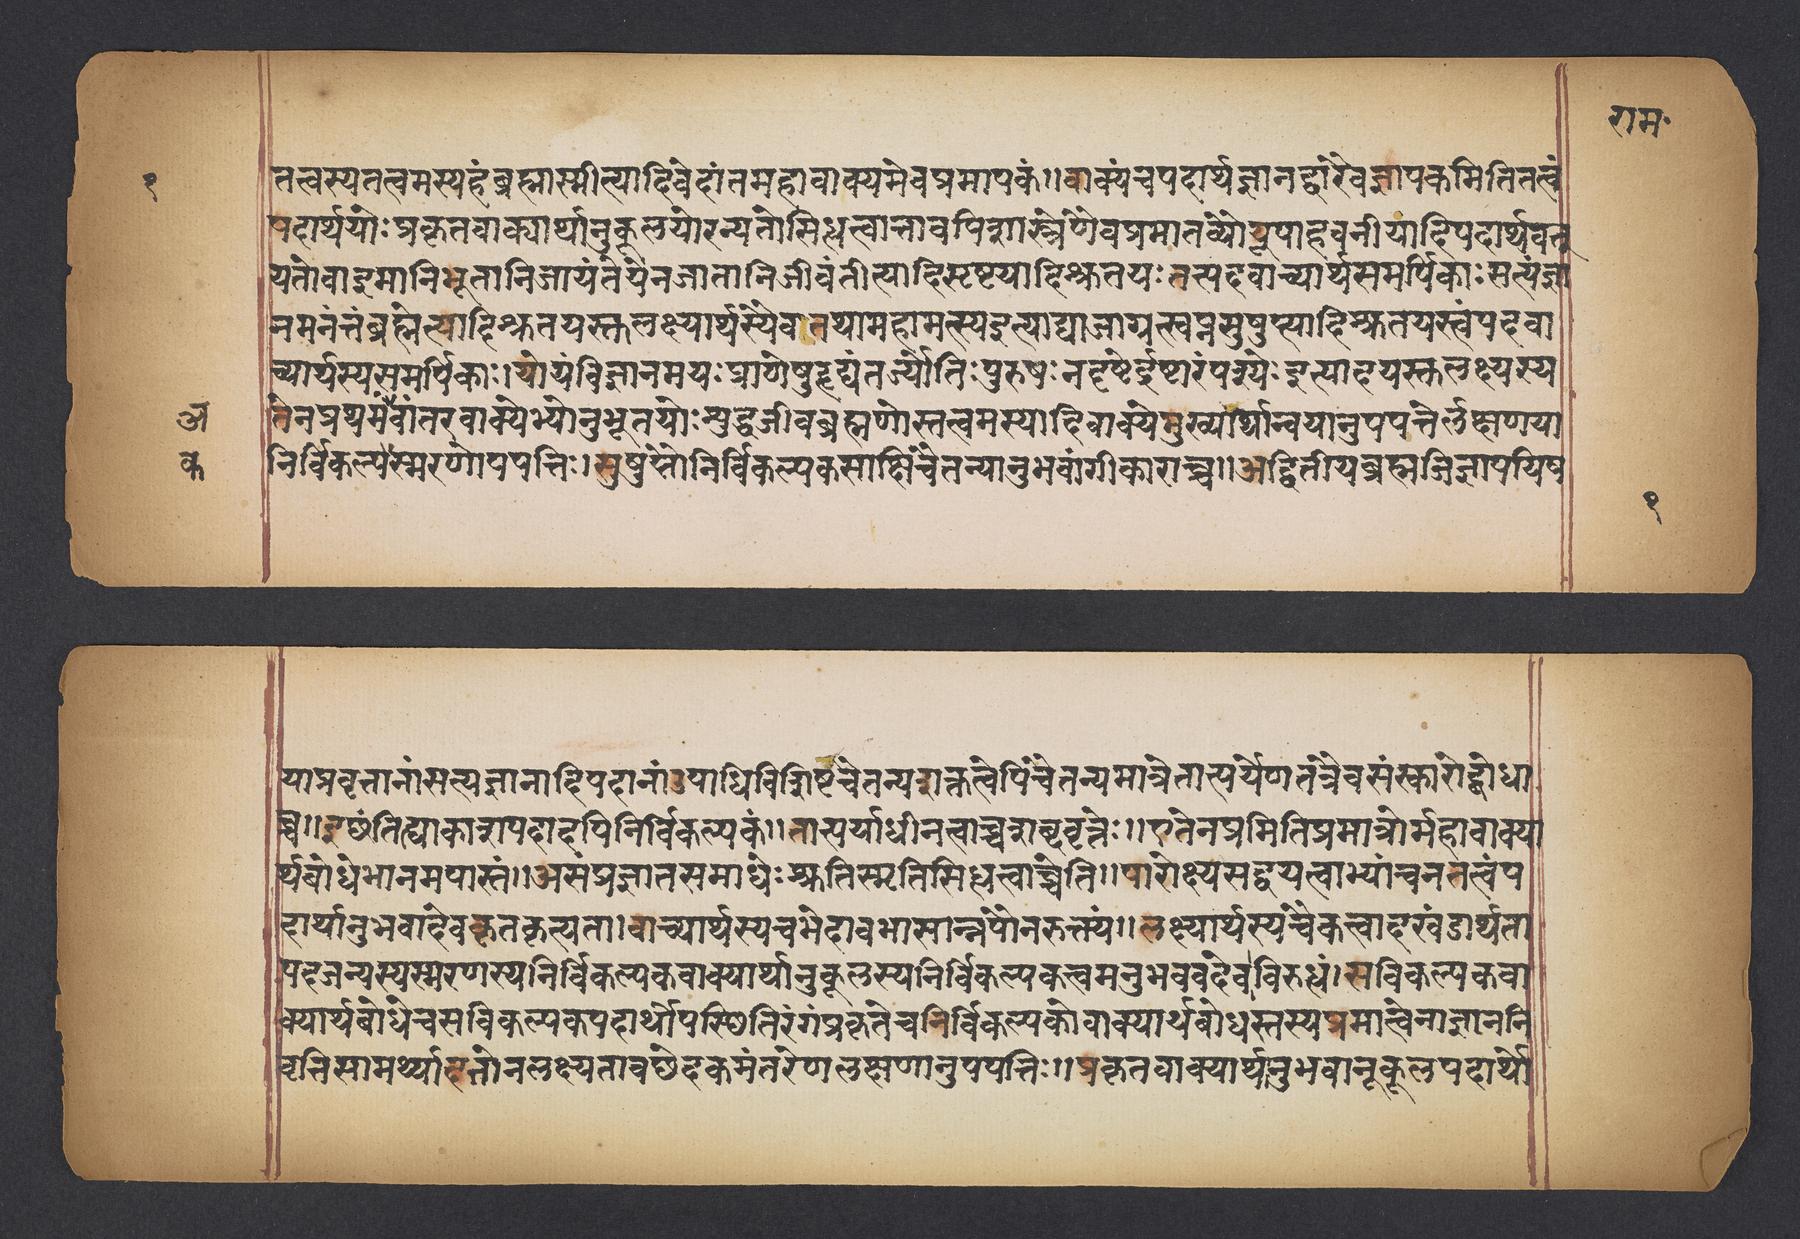 राम॰
१
तत्वस्यतत्वमस्यहंब्रह्मास्मीत्यादिवेदांतमहावाक्यमेवप्रमापकं॥वाक्यंचपदार्थज्ञानद्वारैवज्ञापकमितितत्वं
पदार्थयोःप्रकृतवाक्यार्थानुकूलयोरन्यतोसिध्यत्वात्तावपिशास्त्रेणैवप्रमातव्यौयूपाहवनीयादिपदार्थवत्
यतोवाइमानिभूतानिजायंतेयेनजातानिजीवंतीत्यादिसृष्ट्यादिश्रुतयःतत्पदवाच्यार्थसमर्पिकाःसत्यंज्ञा
नमनंत्तंब्रह्मेत्यादिश्रुतयस्तलक्ष्यार्थस्यैवातथामहामत्स्यइत्याद्याजाग्रत्स्वप्नसुषुप्त्यादिश्रुतयस्त्वंपदवा
च्यार्थस्यसमर्पिकाः।योयंविज्ञानमयःप्राणेषुहृद्यंतर्ज्योतिःपुरुषःनदृष्टेर्द्रष्टारंपश्येःइत्यादयस्तलक्ष्यस्य
अ तेनप्रथमंवांतरवाक्येभ्योनुभूतयोःशुद्धजीवब्रह्मणोस्तत्वमस्यादिवाक्येमुख्यार्थान्वयानुपपत्तेर्लक्षणया
क निर्विकल्पस्मरणोपपत्तिः।सुषुप्तौनिर्विकल्पकसाक्षिचैतन्यानुभवांगीकाराच्च॥अद्वितीयब्रह्मजिज्ञापयिष
१
याप्रवृत्तानांसत्यज्ञानादिपदानांउपाधिविशिष्टचैतन्यशक्तत्वेपिचैतन्यमात्रेतात्पर्येणतत्रैवसंस्कारोद्बोधा
च्च॥इछंतिह्याकाशपदादपिनिर्विकल्पकं॥तात्पर्याधीनत्वाच्चशब्दवृत्तेः॥एतेनप्रमितिप्रमात्रोर्महावाक्या
र्थबोधेभानमपास्तं॥असंप्रज्ञातसमाधेःश्रुतिस्मृतिसिध्यत्वाच्चेति॥पारोक्ष्यसद्वयत्वाभ्यांचनतत्वंप
दार्थानुभवादेवकृतकृत्यता।वाच्यार्थस्यचभेदावभासान्नपौनरुत्तयं॥लक्ष्यार्थस्यचैकत्वादखंडार्थता
पदजन्यस्यस्मरणस्यनिर्विकल्पकवाक्यार्थानुकूलस्यनिर्विकल्पकत्वमनुभववदेवविरुध्यं।सविकल्पकवा
क्यार्थबोधेचसविकल्पकपदार्थोपस्थितिरंगंप्रकृतेचनिर्विकल्पकोवाक्यार्थबोधस्तस्यप्रमात्वेनाज्ञाननि
वृत्तिसामर्थ्यादतोनलक्ष्यतावछेदकमंतरेणलक्षणानुपपत्तिः॥प्रकृतवाक्यार्थनुभवानूकूलपदार्थो